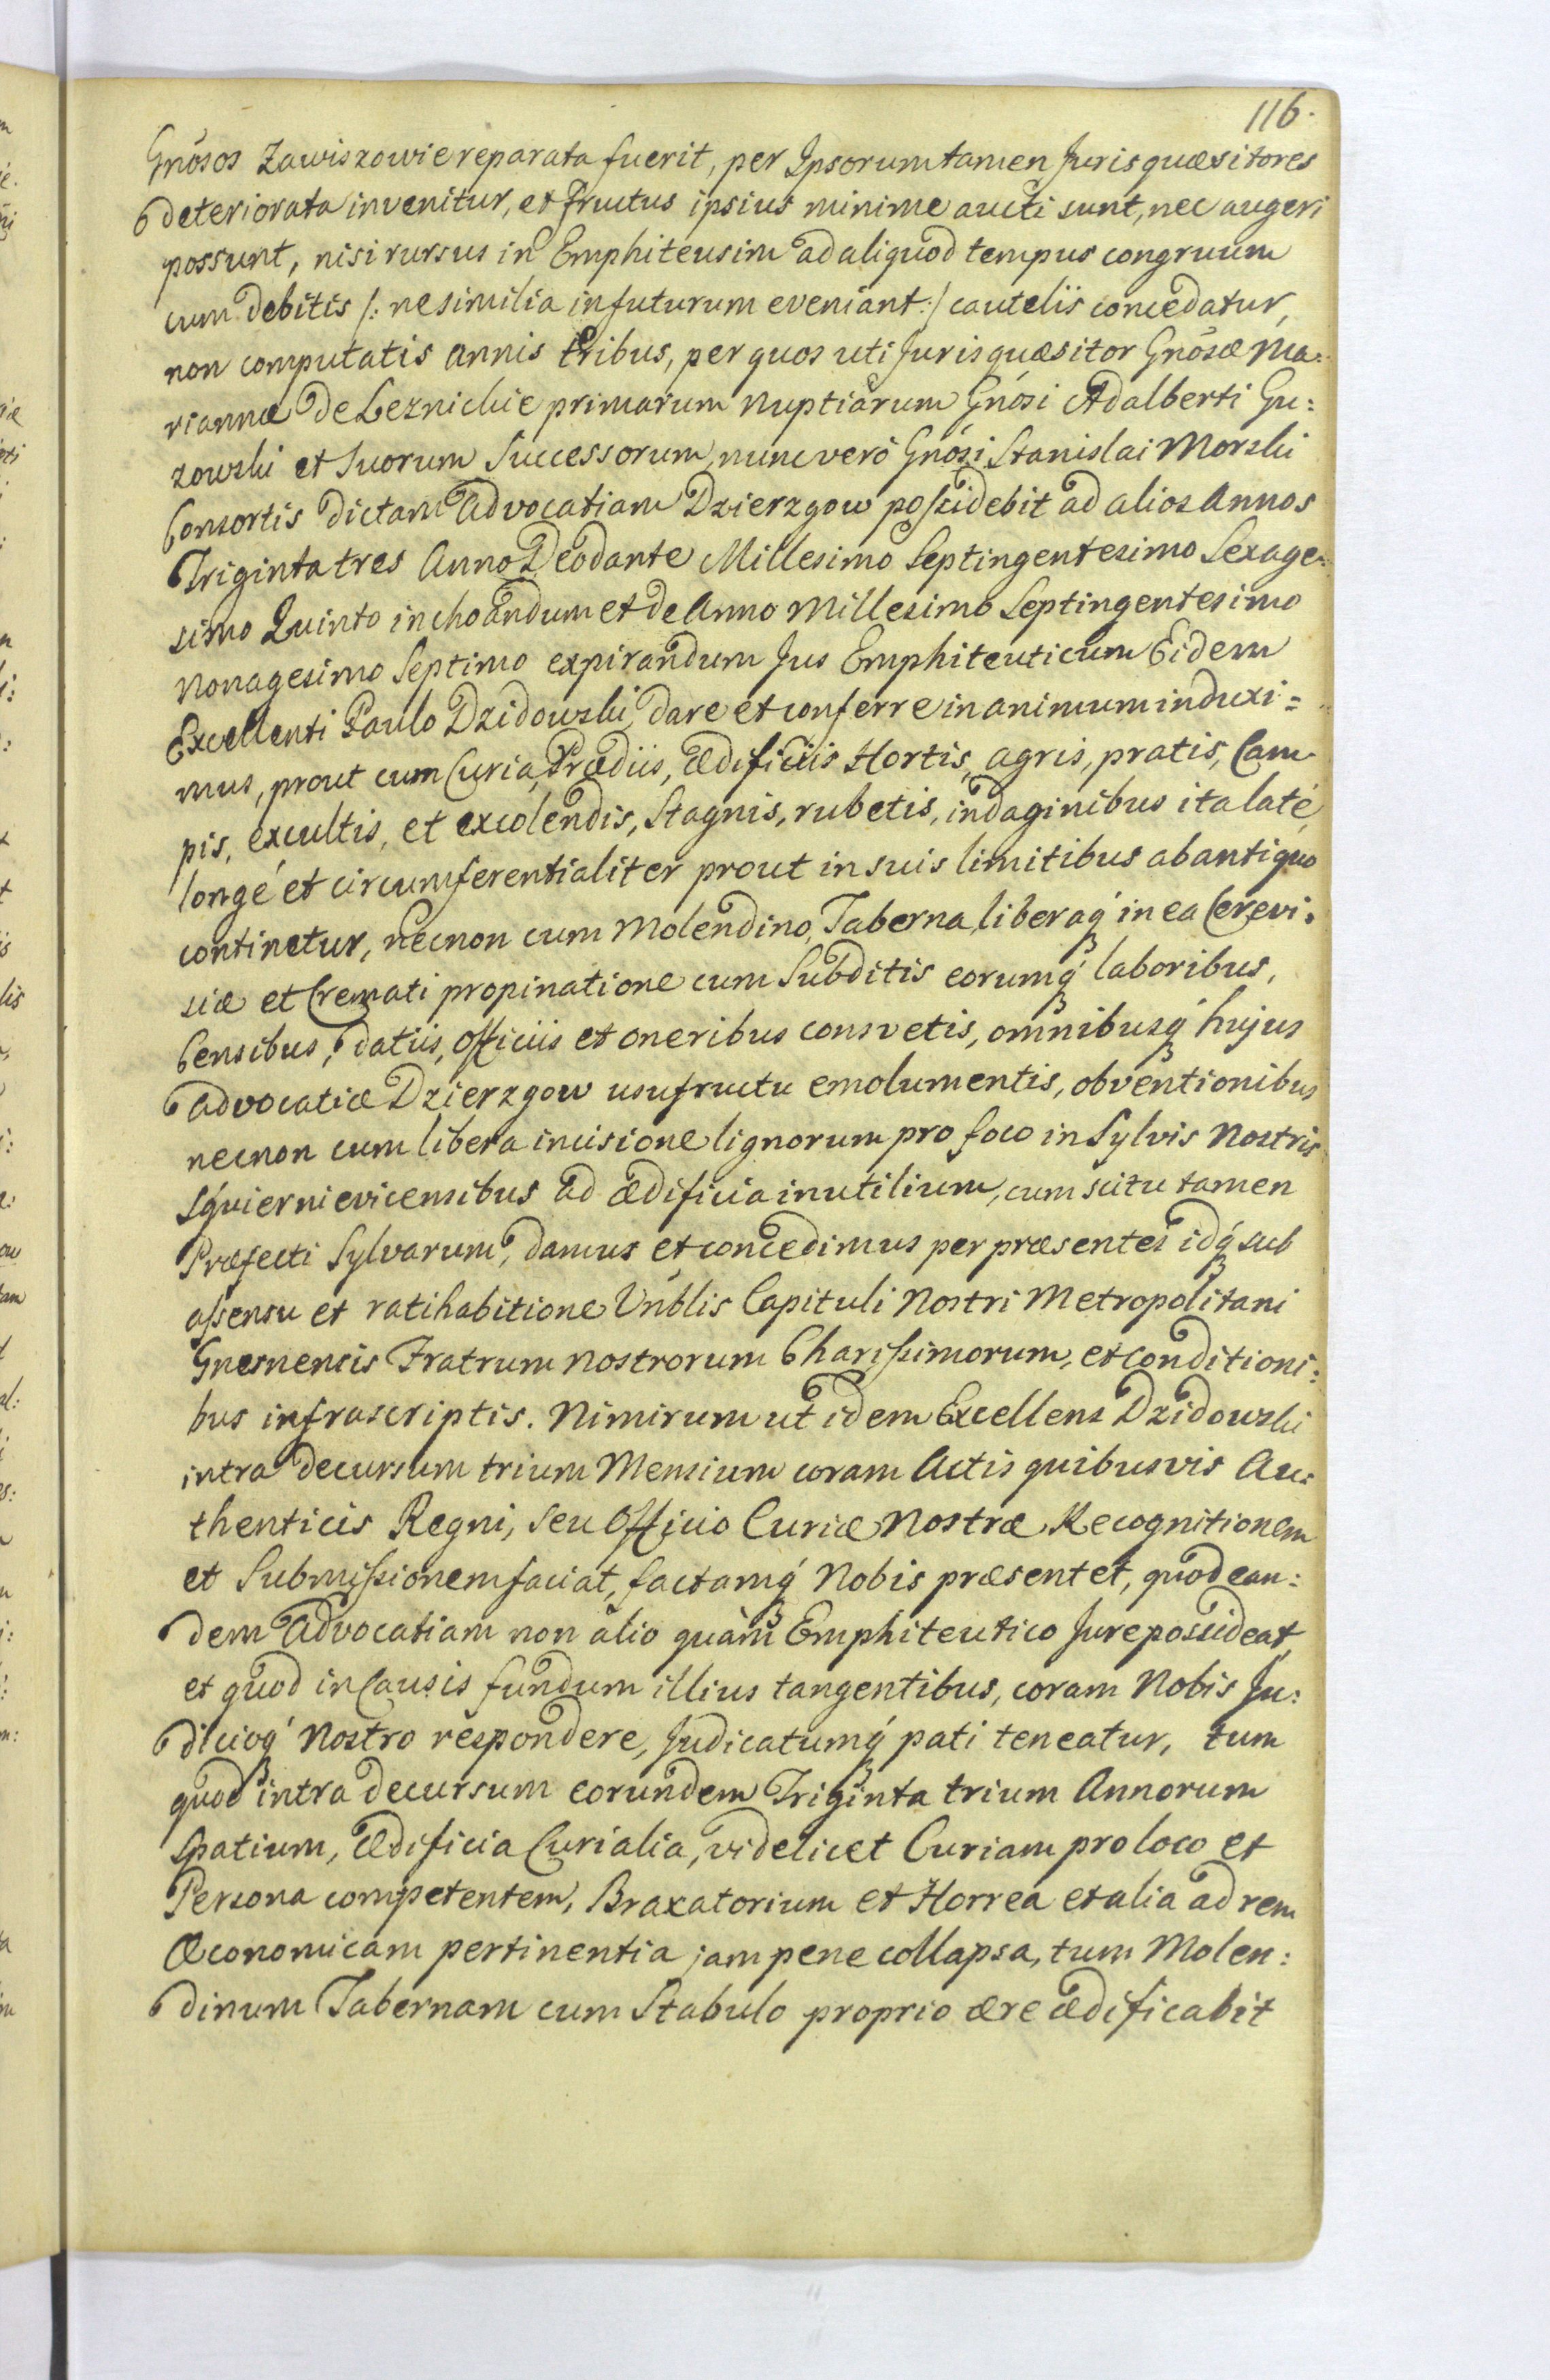 116.
Gnősos Zawiszowie reparata fuerit, per Ipsorum tamen Jurisquæsitores
deteriorata invenitur, et fructus ipsius minime aucti sunt, nec augeri
possunt, nisi rursus in Emphiteusim ad aliquod tempus congruum
cum debitis /: ne similia in futurum eveniant :/ cautelis concedatur,
non computatis annis tribus, per quos uti Jurisquæsitor Gnősæ Ma:
riannæ de Leznickie primarum nuptiarum Gnősi Adalberti Gu:
zowski et suorum Successorum, nunc verò Gnősi Stanislai Morski
Consortis dictam Advocatiam Dzierzgow possidebit ad alios Annos
Triginta tres Anno Deo dante Millesimo Septingentesimo Sexage:
simo Quinto inchoandum et de Anno Millesimo Septingentesimo
Nonagesimo Septimo expirandum Jus Emphiteuticum Eidem
Excellenti Paulo Dzidowski, dare et conferre in animum induxi=
mus, prout cum Curia, Prædiis, ædificiis Hortis, agris, pratis, Cam
pis, excultis, et excolendis, Stagnis, rubetis, indaginibus ita laté,
longé et circumferentialiter prout in suis limitibus ab antiquo
continetur, necnon cum Molendino, Taberna, liberaq́ in ea Cerevi:
siæ et Cremati propinatione cum Subditis eorumq́ laboribus,
Censibus, datiis, officiis et oneribus consvetis, omnibusq́ hujus
Advocatiæ Dzierzgow usufructu emolumentis, obventionibus
necnon cum libera incisione lignorum pro foco in Sylvis Nostris
Squiernievicensibus ad ædificia inutilium, cum scitu tamen
Præfecti Sylvarum, damus et concedimus per præsentes idq́ sub
assensu et ratihabitione Vnblis Capituli Nostri Metropolitani
Gnesnensis Fratrum nostrorum Charissimorum, et conditioni:
bus infrascriptis. Nimirum ut idem Excellens Dzidowski
intra decursum trium Mensium coram Actis quibusvis Au:
thenticis Regni, seu Officio Curiæ Nostræ Recognitionem
et Submissionem faciat, factamq́ Nobis præsentet, quod ean:
dem Advocatiam non alio quàm Emphiteutico Jure possideat,
et quod in Causis fundum illius tangentibus, coram Nobis Ju:
dicioq́ Nostro respondere, Judicatumq́ pati teneatur, tum
quod intra decursum eorundem Triginta trium Annorum
Spatium, ædificia Curialia, videlicet Curiam pro loco et
Persona competentem, Braxatorium et Horrea et alia ad rem
Œconomicam pertinentia jam pene collapsa, tum Molen:
dinum Tabernam cum Stabulo proprio ære ædificabit